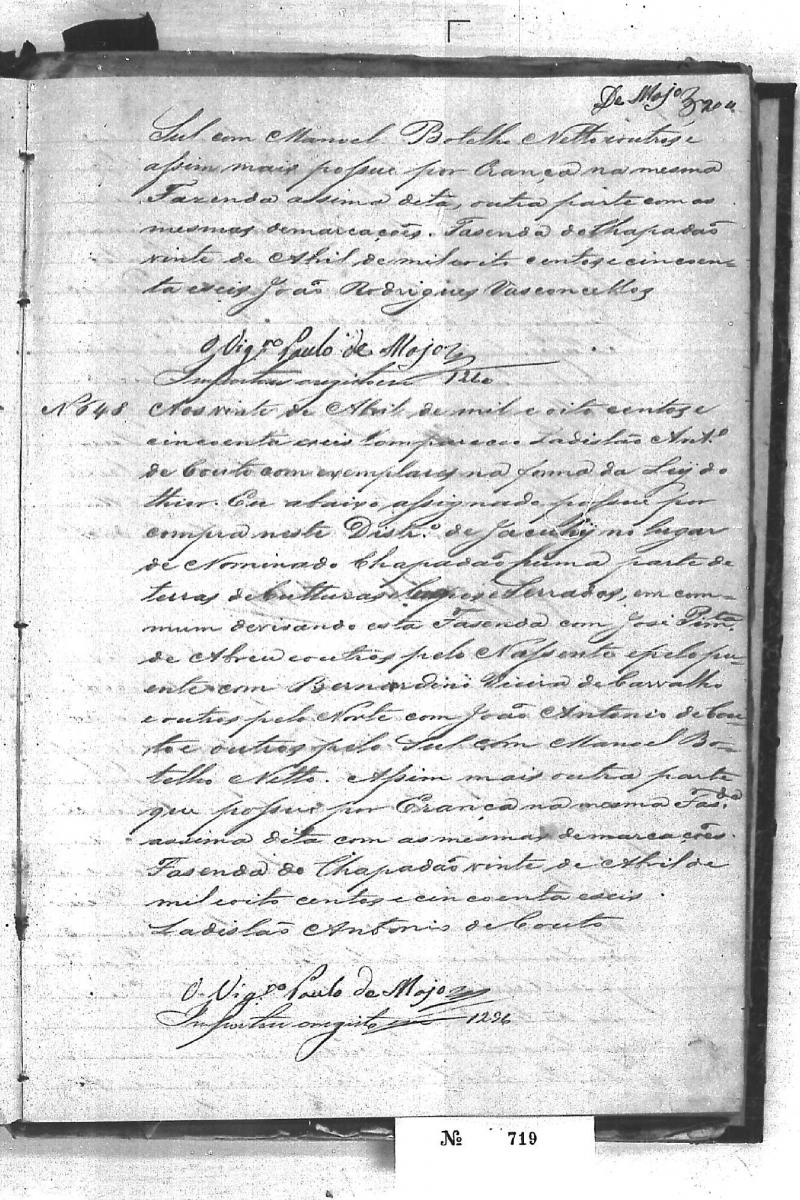 De Mojo 204
Sul com Manoel Botelho Netto e outros e
assim mais possue por Erança na mesma
Fazenda assima dita, outra parte com as
mesmas demarcações. Fasenda do Chapadaõ
vinte de Abril de mil e oito centos e cincoen-
ta e seis João Rodrigues Vasconcellos
O Vigr.o Paulo de Mojo
Importou o registo 1260
No 648 Aos vinte de Abril de mil e oito centos e
cincoenta e seis compareceo Ladislão Ant.o
de Couto com exemplares na forma da Ley do
thior. Eu abaixo assignado possue por
compra neste Distr.o de Jacuhy no lugar
de Nominado Chapadaõ huma parte de
terras de Culturas e Campos e Serrados, em com-
mum devisando esta Fasenda com José Pint.o
de Abreu e outros pelo Nassente e pelo pu-
ente com Bernardino Vieira de Carvalho
e outros pelo Norte com João Antonio de Cou-
to e outros pelo Sul com Manoel Bo-
telho Netto. Assim mais outra parte
que possue por Erança na mesma Fas.da
assima dita com as mesmas demarcações.
Fasenda do Chapadaõ vinte de Abril de
mil e oito centos e cincoenta e seis.
Ladislão Antonio de Couto
O Vigr.o Paulo de Mojo
Importou o registo 1296
No 719